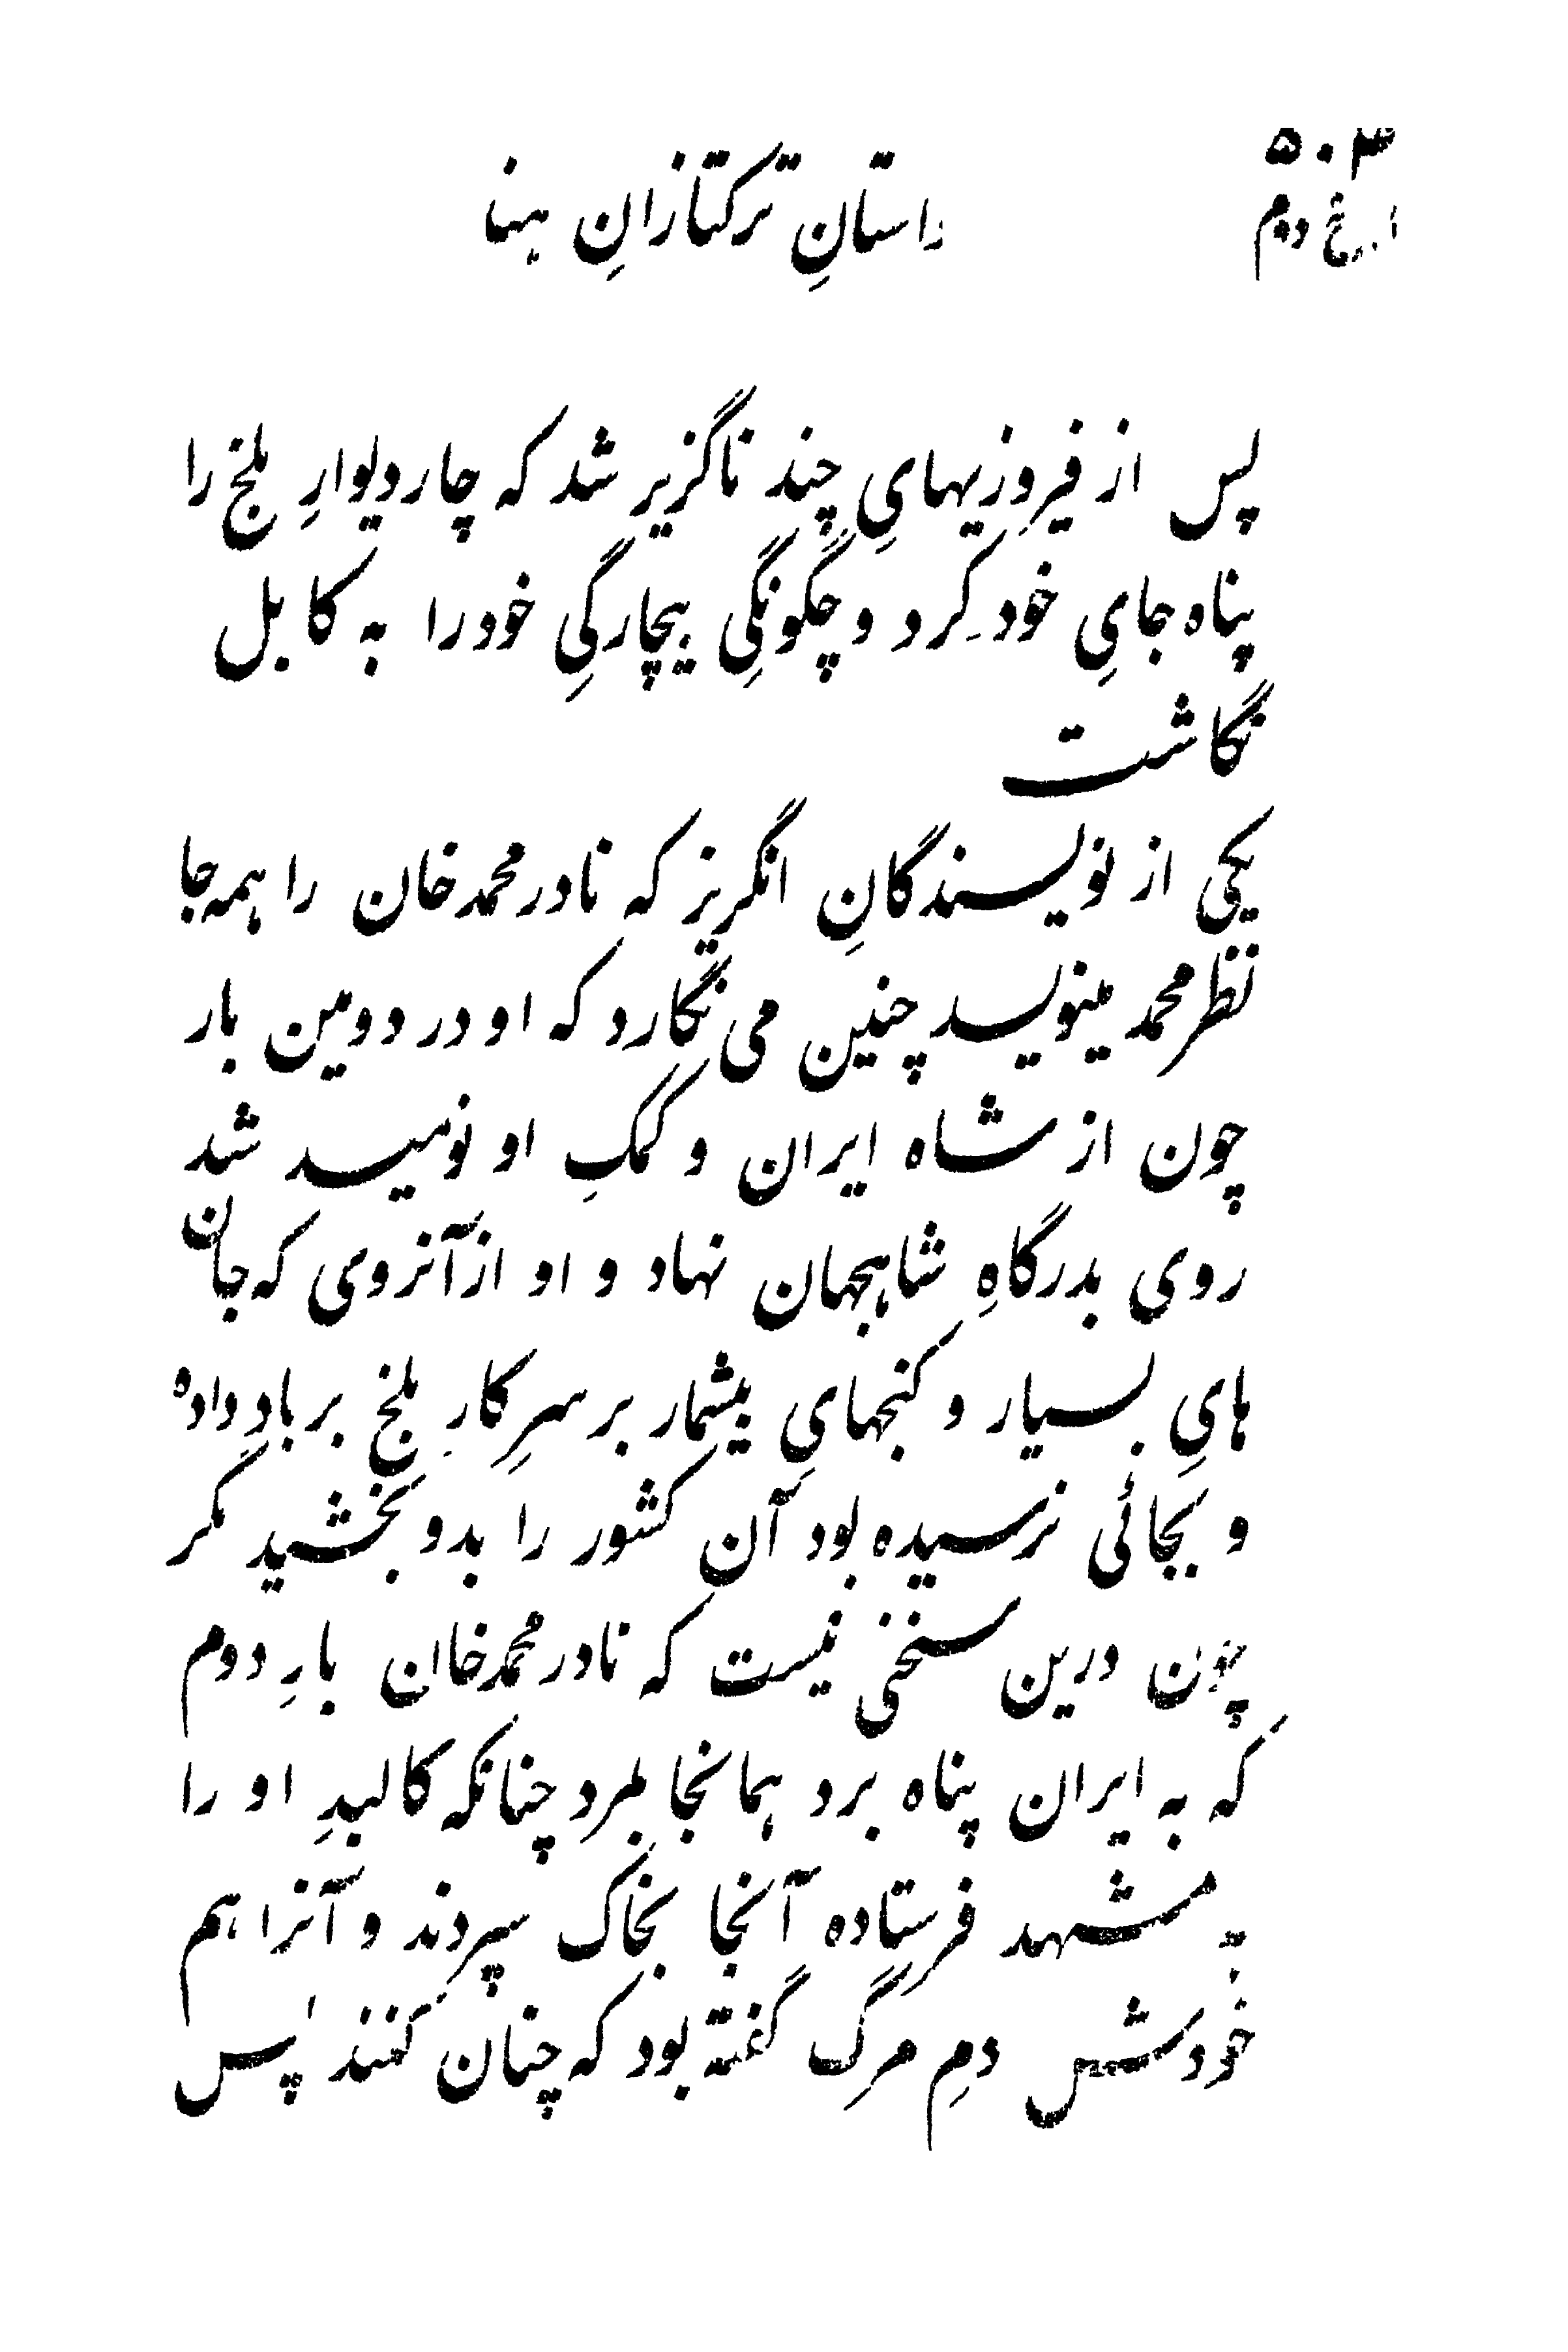 ۵۰۳
داستانِ ترکتازانِ هند
دوم
پس از فیروزیهایِ چند ناگزیر شد که چار دیوارِ بلخ را
پناه جایِ خود کرد و چگونگیِ بیچارگیِ خود را به کابل
نگاشت
یکی از نویسندگانِ انگریز که نادر محمد خان را همه جا
نظر محمد مینویسد چنین می نگارد که او در دومین بار
چون از شاه ایران و کمکِ او نومید شد
روی بدرگاهِ شاهجهان نهاد و او از آنروی که جان
هایِ بسیار و گنجهایِ بیشمار بر سرِ کارِ بلخ بر باد داده
و بجائی نرسیده بود آن کشور را بدو بخشید مگر
چون درین سخنی نیست که نادر محمد خان بارِ دوم
که به ایران پناه برد همانجا بمرد چنانکه کالبدِ او را
به مشهد فرستاده آنجا بخاک سپردند و آنرا هم
خودش دمِ مرگ گفته بود که چنان کنند پس